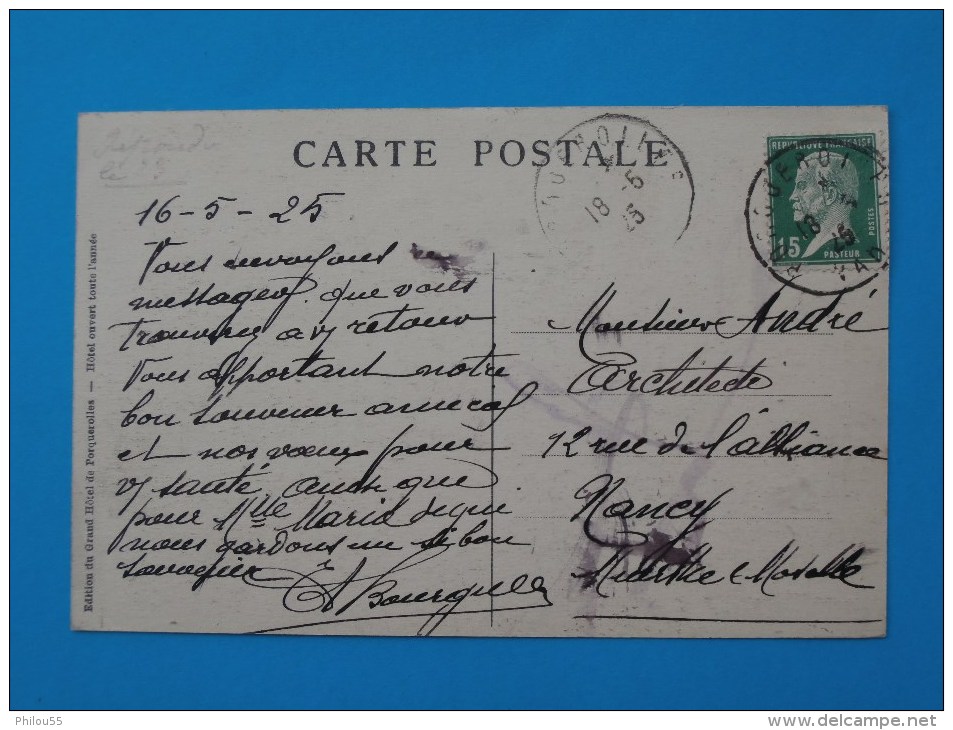 CARTE POSTALE
16-5-25
Vous envoyons
messages que vous
trouverez à vy retour
Vous apportant notre
bon souvenir amical
et nos vœux pour
vy santé, ainsi que
pour Mlle Marie de qui
nous gardons un si bon
souvenir
Monsieur André
Architecte
12 rue de l'alliance
Nancy
Meurthe & Moselle
Edition du Grand Hôtel de Porquerolles — Hôtel ouvert toute l'année
REPUBLIQUE FRANÇAISE
POSTES
15
PASTEUR
18 -5
25
VAR
Philou55
www.delcampe.net